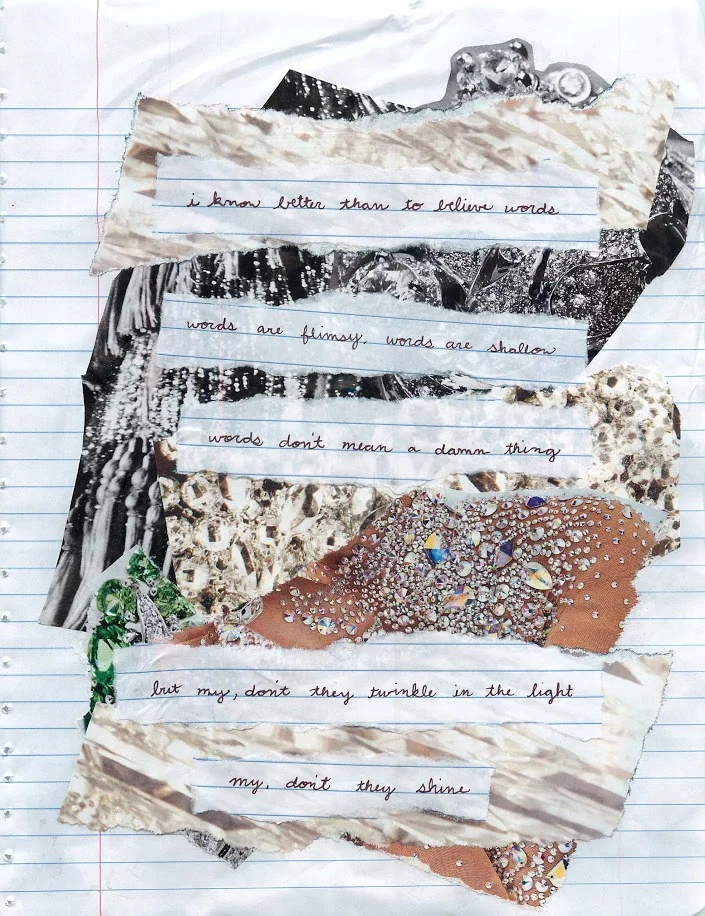 i know better than to believe words.
words are flimsy. words are shallow
words don't mean a damn thing
but my, don't they twinkle in the light
my, don't they shine